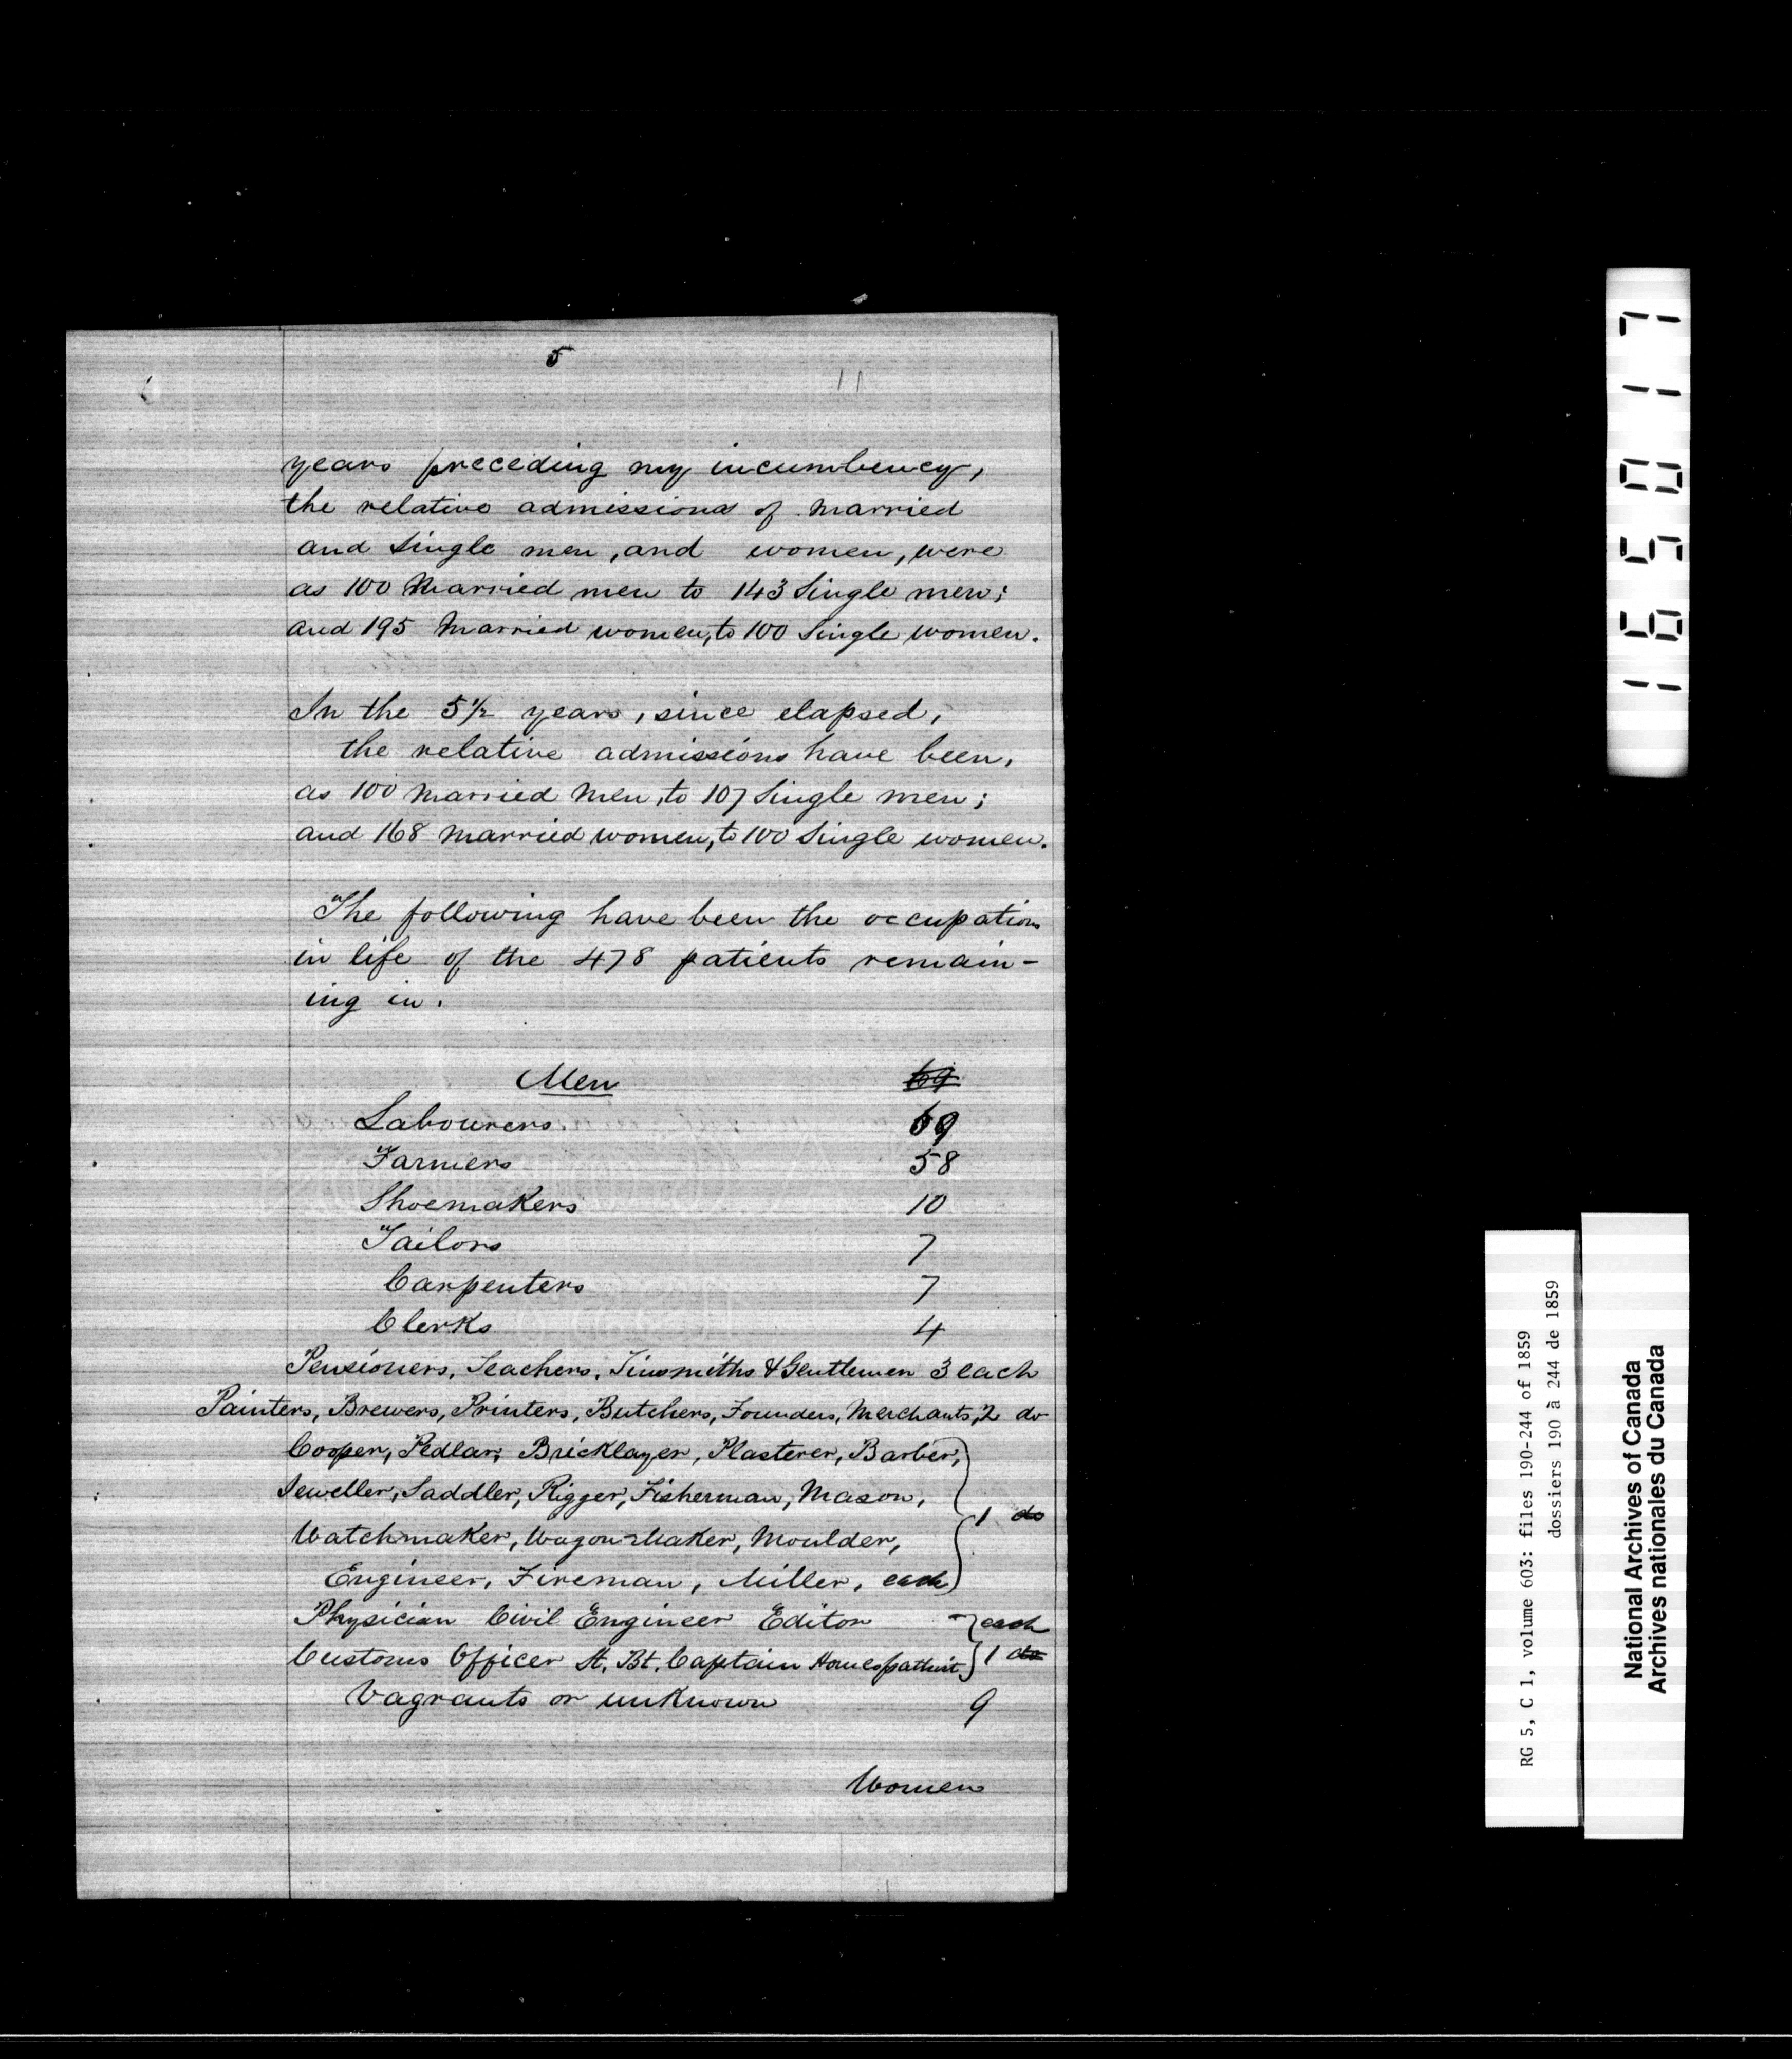 5
11
years preceding my incumbency,
the relative admissions of married
and Single men, and women, were
as 100 Married men to 143 Single men;
and 195 Married women, to 100 Single women.
In the 5 1/2 years, since elapsed,
the relative admissions have been,
as 100 Married Men, to 107 Single men;
and 168 Married women, to 100 Single women.
The following have been the occupations
in life of the 478 patients remain-
ing in.
Men 69
Labourers. 69
Farmers 58
Shoemakers 10
Tailors 7
Carpenters 7
Clerks 4
Pensioners, Teachers, Tinsmiths & Gentlemen 3 each
Painters, Brewers, Printers, Butchers, Founders, Merchants, 2 do
Cooper, Pedlar, Bricklayer, Plasterer, Barber,
Jeweller, Saddler, Rigger, Fisherman, Mason,
1 do
Watchmaker, Wagon-Maker, Moulder,
Engineer, Fireman, Miller, each
Physician Civil Engineer Editor each
Customs Officer St. Bt. Captain Homeopathist 1 do
Vagrants or unknown 9
Women
165017
RG 5, C 1, volume 603: files 190-244 of 1859
dossiers 190 à 244 de 1859
National Archives of Canada
Archives nationales du Canada